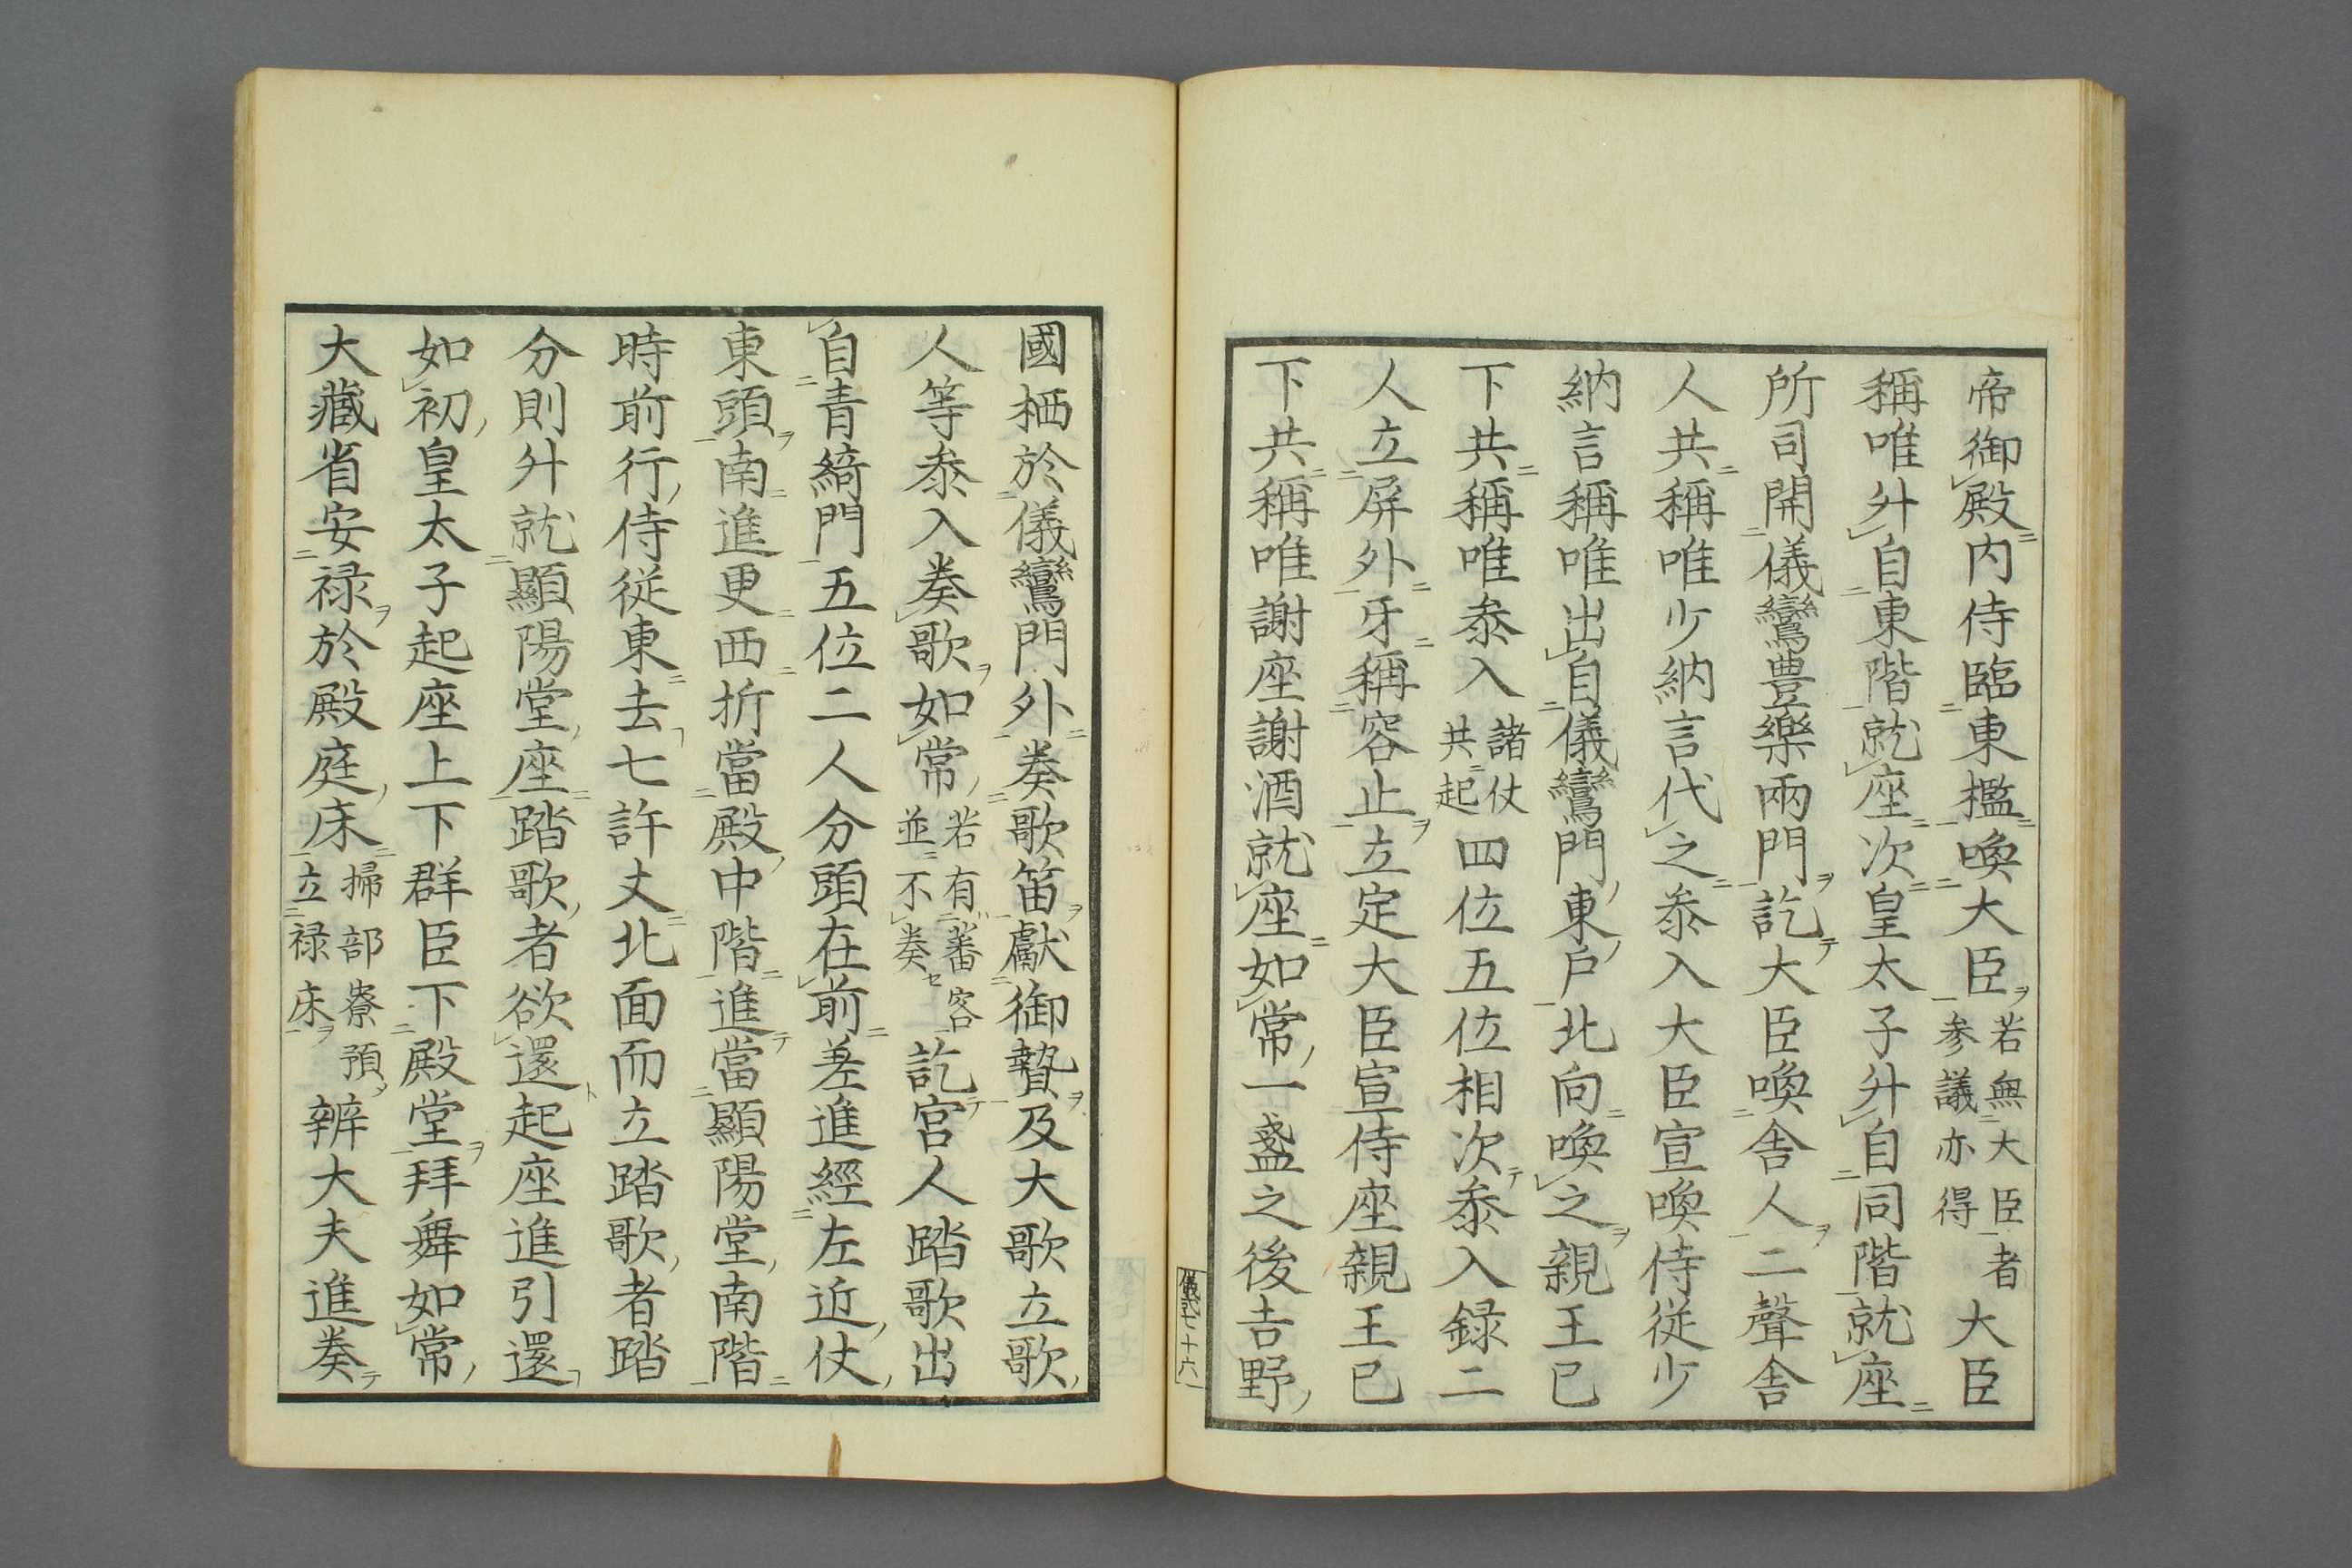 帝御殿内侍臨東檻喚大臣若無大臣者参議亦得大臣
稱唯升自東階就座次皇太子升自同階就座
所司開儀鸞豊樂兩門訖大臣喚舎人二聲舎
人共稱唯少納言代之叅入大臣宣喚侍従少
納言稱唯出自儀鸞門東戸北向喚之親王已
下共稱唯叅入諸仗共起四位五位相次叅入録二
人立屏外牙稱容止立定大臣宣侍座親王已
下共稱唯謝座謝酒就座如常一盞之後吉野
儀式七十六
國栖於儀鸞門外奏歌笛獻御贄及大歌立歌
人等叅入奏歌如常若有蕃客並不奏訖宮人踏歌出
自青綺門五位二人分頭在前差進經左近仗
東頭南進更西折當殿中階進當顯陽堂南階
時前行侍従東去七許丈北面而立踏歌者踏
分則升就顯陽堂座踏歌者欲還起座進引還
如初皇太子起座上下群臣下殿堂拜舞如常
大藏省安禄於殿庭床掃部寮預立禄床辨大夫進奏